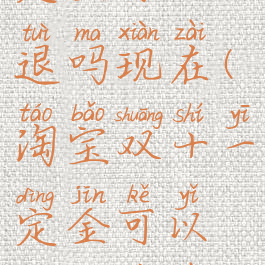 tuì ma xiàn zài
退吗现在(
táo bǎo shuāng shí yī
淘宝双十一
dìng jīn kě yǐ
定金可以